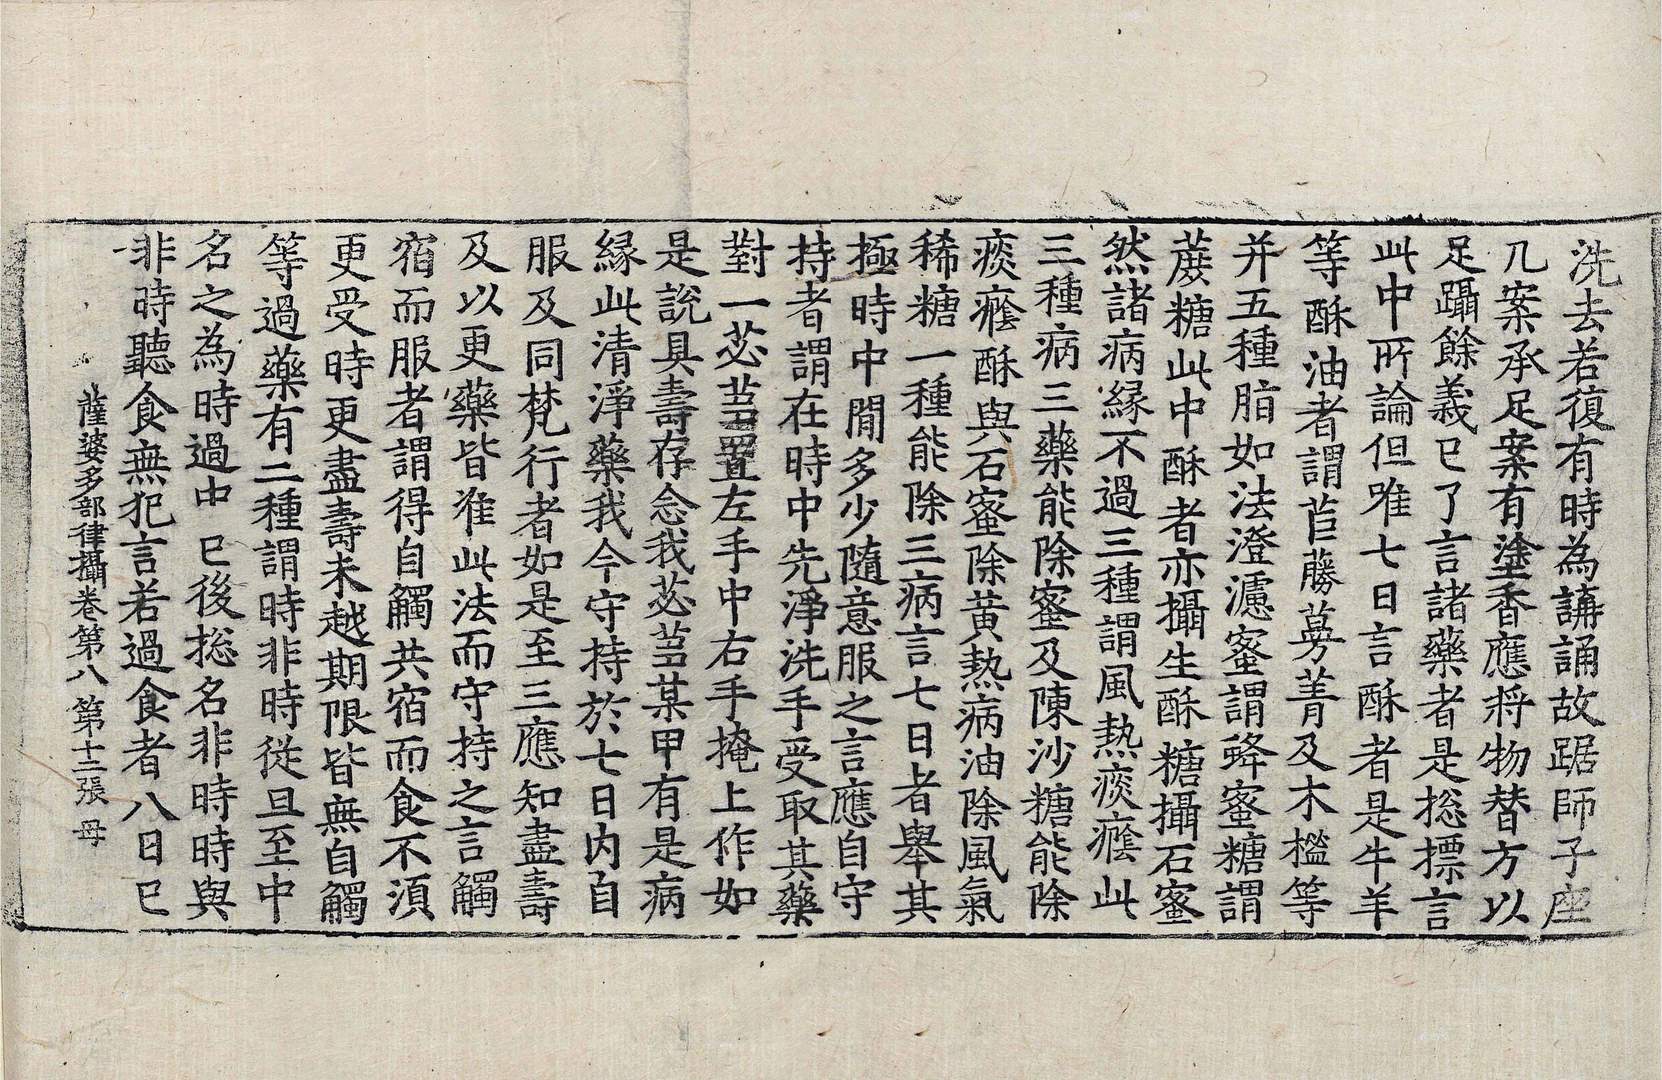 洗去若復有時為講誦故踞師子座
几案承足案有塗香應將物替方以
足躡餘義已了言諸藥者是揔摽言
此中所論但唯七日言酥者是牛羊
等酥油者謂苣藤蔓菁及木槛等
并五種脂如法澄濾蜜謂蜂蜜糖謂
蔗糖此中酥者亦攝生酥糖攝石蜜
然諸病緣不過三種謂風熱痰癊此
三種病三藥能除蜜及陳沙糖能除
痰癊酥與石蜜除黃熱病油除風氣
稀糖一種能除三病言七日者舉其
極時中閒多少隨意服之言應自守
持者謂在時中先淨洗手受取其藥
對一苾芻置左手中右手掩上作如
是說具壽存念我苾芻某甲有是病
緣此清淨藥我今守持於七日內自
服及同梵行者如是至三應知盡壽
及以更藥皆准此法而守持之言觸
宿而服者謂得自觸共宿而食不須
更受時更盡壽未越期限皆無自觸
等過藥有二種謂時非時從旦至中
名之為時過中已後揔名非時時與
非時聽食無犯言若過食者八日已
薩婆多部律攝卷第八 第十二張 母